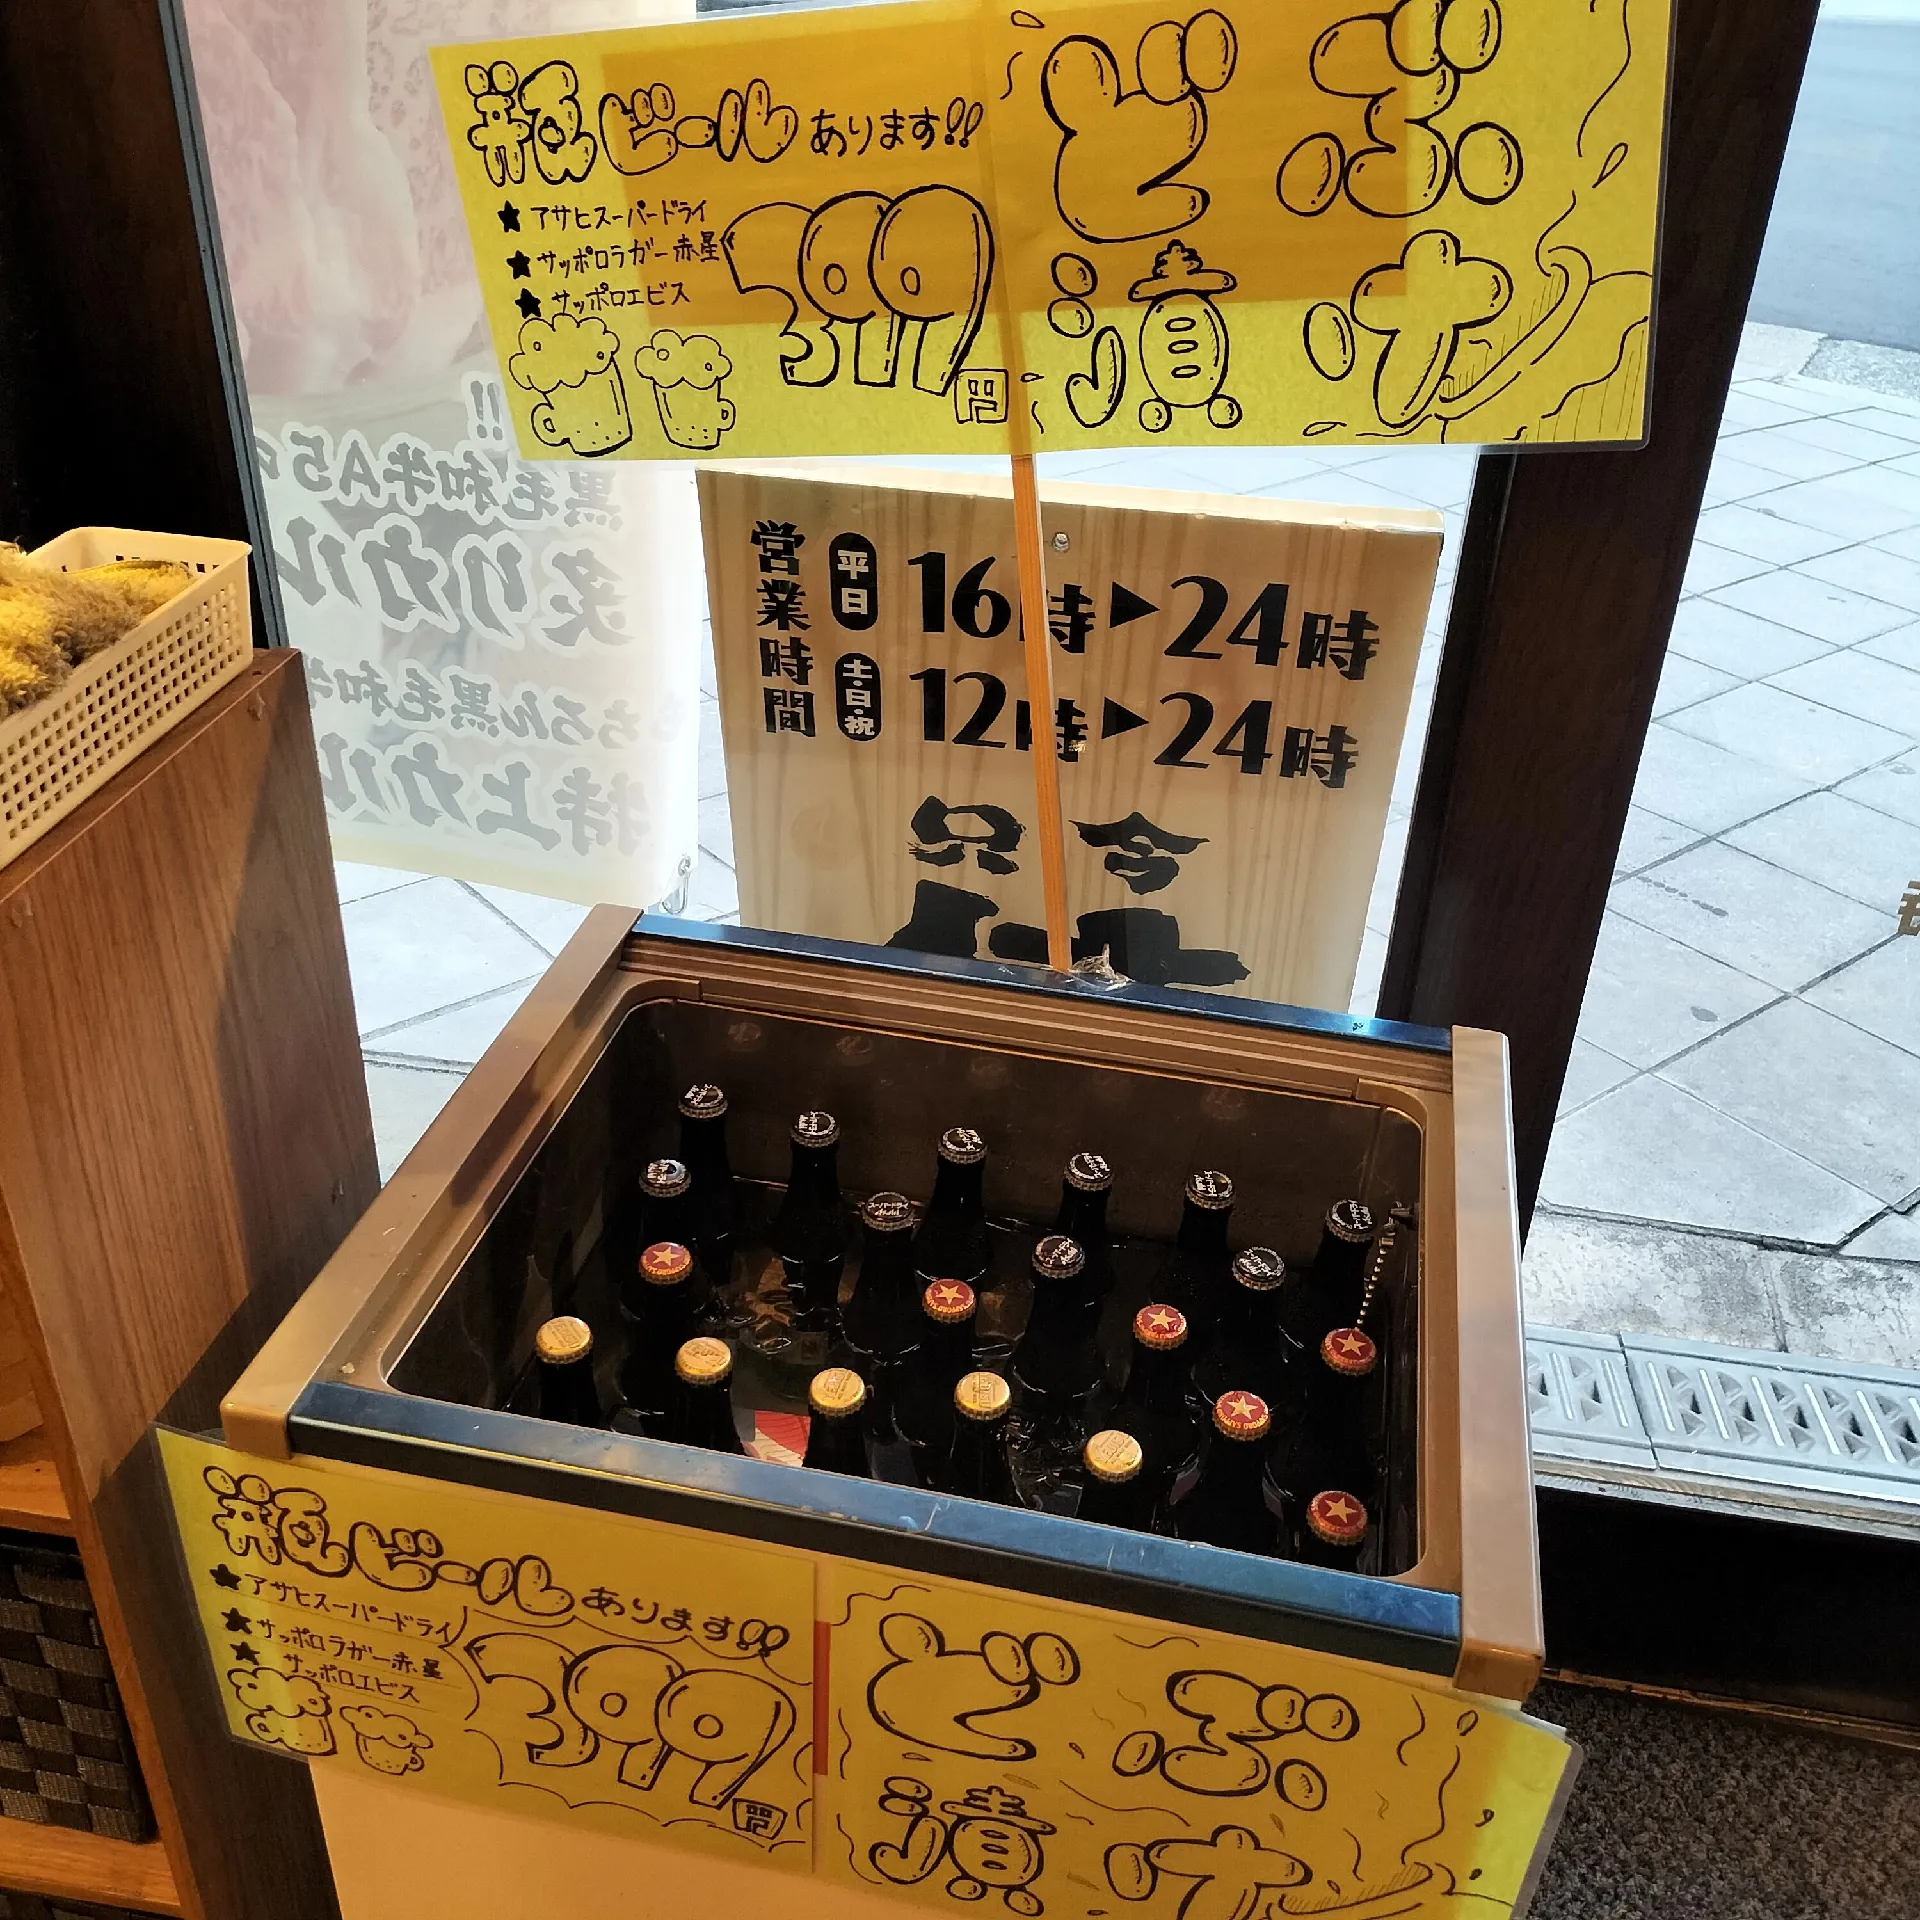 瓶ビールあります!!
★アサヒスーパードライ
★サッポロラガー赤星
★サッポロエビス
399円
どぶ
漬け
!!
黒毛和牛A5の
炙りカル
もちろん黒毛和牛
特上カル
営業時間
平日 16時▶24時
土・日・祝 12時▶24時
只今
瓶ビールあります!!
★アサヒスーパードライ
★サッポロラガー赤星
★サッポロエビス
399円
どぶ
漬け